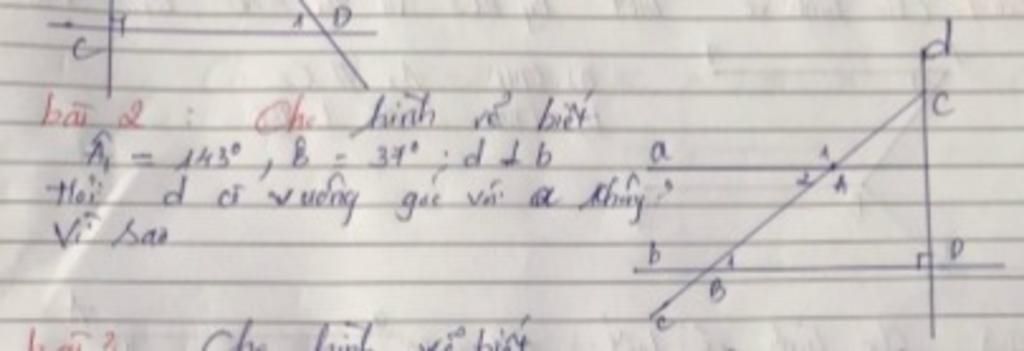 C
1 D
bài 2 : Cho hình vẽ biết
Â₁ = 143°, B = 37° ; d ⊥ b
Hỏi d có vuông góc với a không?
Vì sao
d
C
a
1
2 A
b
1
B
D
c
bài 3 Cho hình vẽ biết